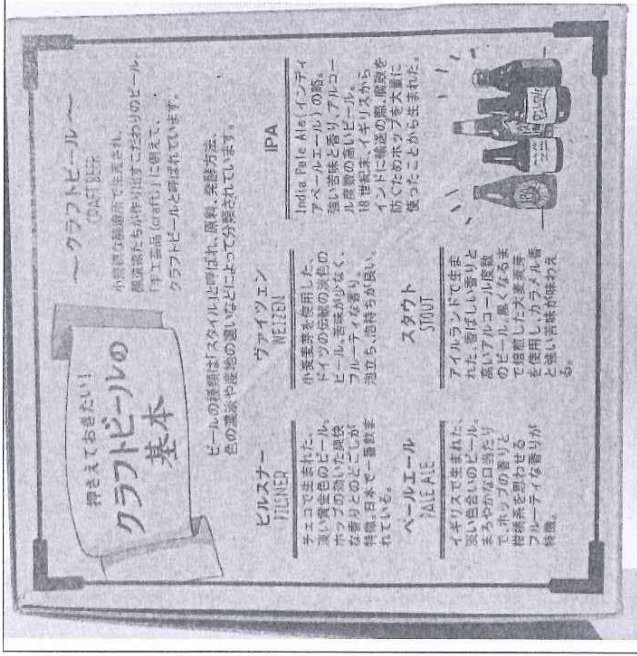 押さえておきたい！
クラフトビールの
基本
～クラフトビール～
CRAFT BEER
小規模な醸造所で生産され、
醸造家たちが作り出すこだわりのビール。
「手工芸品(craft)」に例えて、
クラフトビールと呼ばれています。
ビールの種類は「スタイル」と呼ばれ、原料、発酵方法、
色の濃淡や産地の違いなどによって分類されています。
ピルスナー
PILSNER
チェコで生まれた、
淡い黄金色のビール。
ホップの効いた爽快
な香りとのどごしが
特徴。日本で一番飲ま
れている。
ヴァイツェン
WEIZEN
小麦麦芽を使用した、
ドイツの伝統の淡色の
ビール。苦味が少なく、
フルーティな香り。
泡立ち、泡持ちが良い。
IPA
India Pale Ale(インディ
アペールエール)の略。
強い苦味と香り、アルコー
ル度数の高いビール。
18世紀末、イギリスから
インドに輸送の際、腐敗を
防ぐためホップを大量に
使ったことから生まれた。
ペールエール
PALE ALE
イギリスで生まれた、
淡い色合いのビール。
まろやかな口当たり
で、ホップの香りと
柑橘系を思わせる
フルーティな香りが
特徴。
スタウト
STOUT
アイルランドで生ま
れた、香ばしい香りと
高いアルコール度数
のビール。黒くなるま
で焙煎した大麦麦芽
を使用し、カラメル香
と強い苦味が味わえ
る。